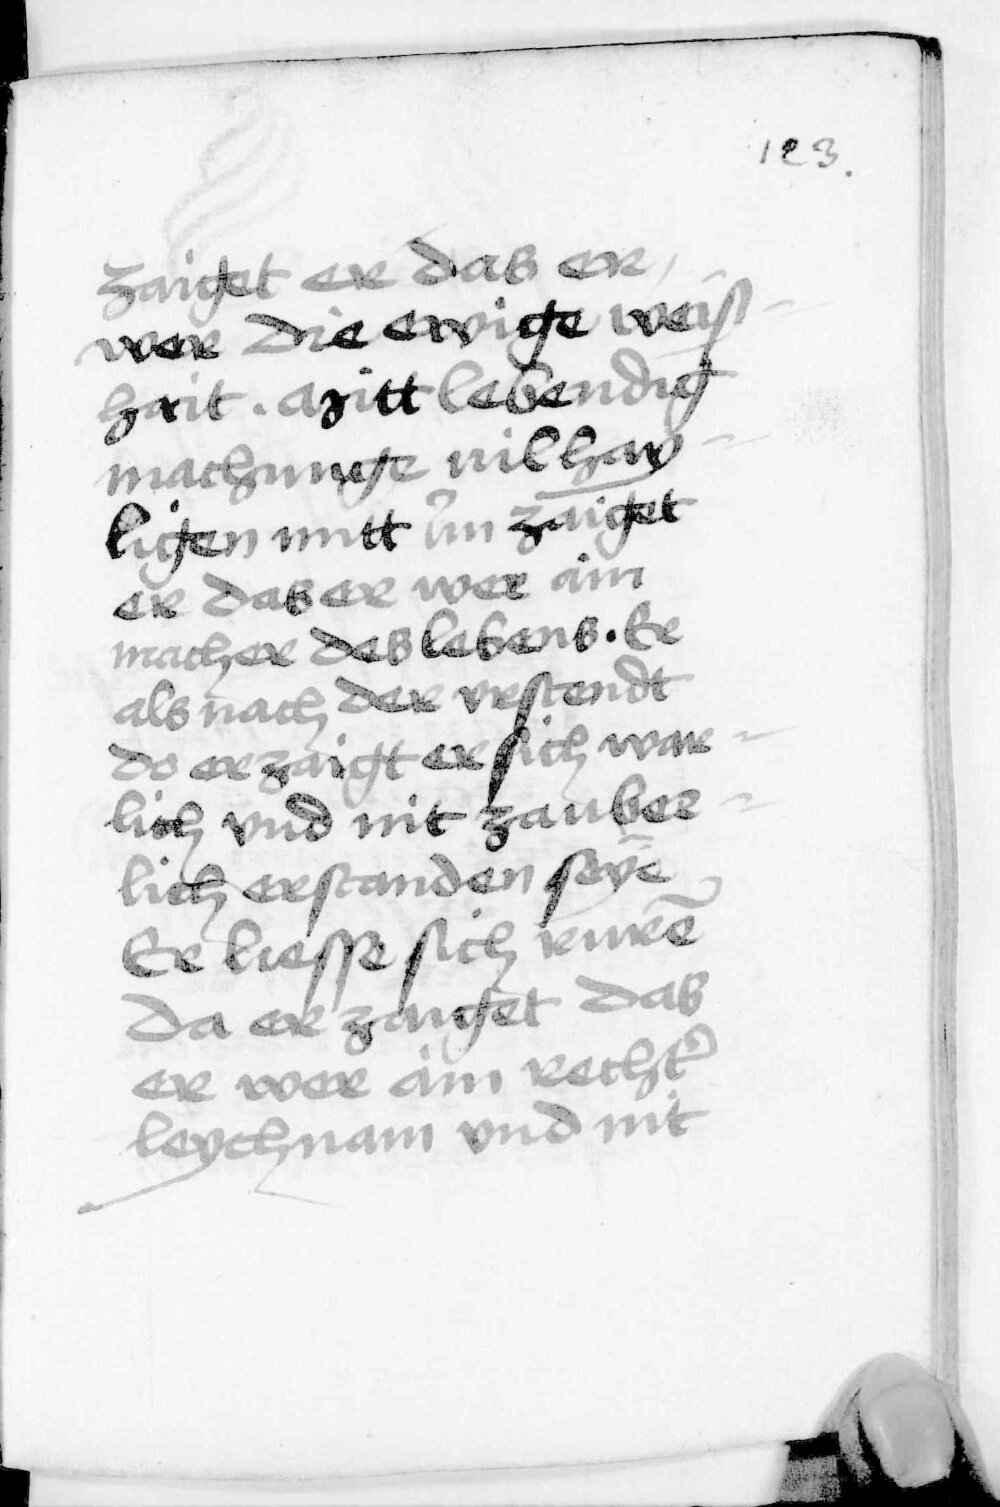 123.
zaiget er das er
wer die ewige weiß-
hait. Mitt lebendig
machunge vil hay-
ligen mitt im zaiget
er das er wer ain
macher des lebens. Er
als nach der vrstendt
do er zaigt er sich war-
lich vnd nit zauber-
lich erstanden seye
Er liesse sich rurē
Da er zaiget das
er wer ain recht̓
leychnam vnd nit